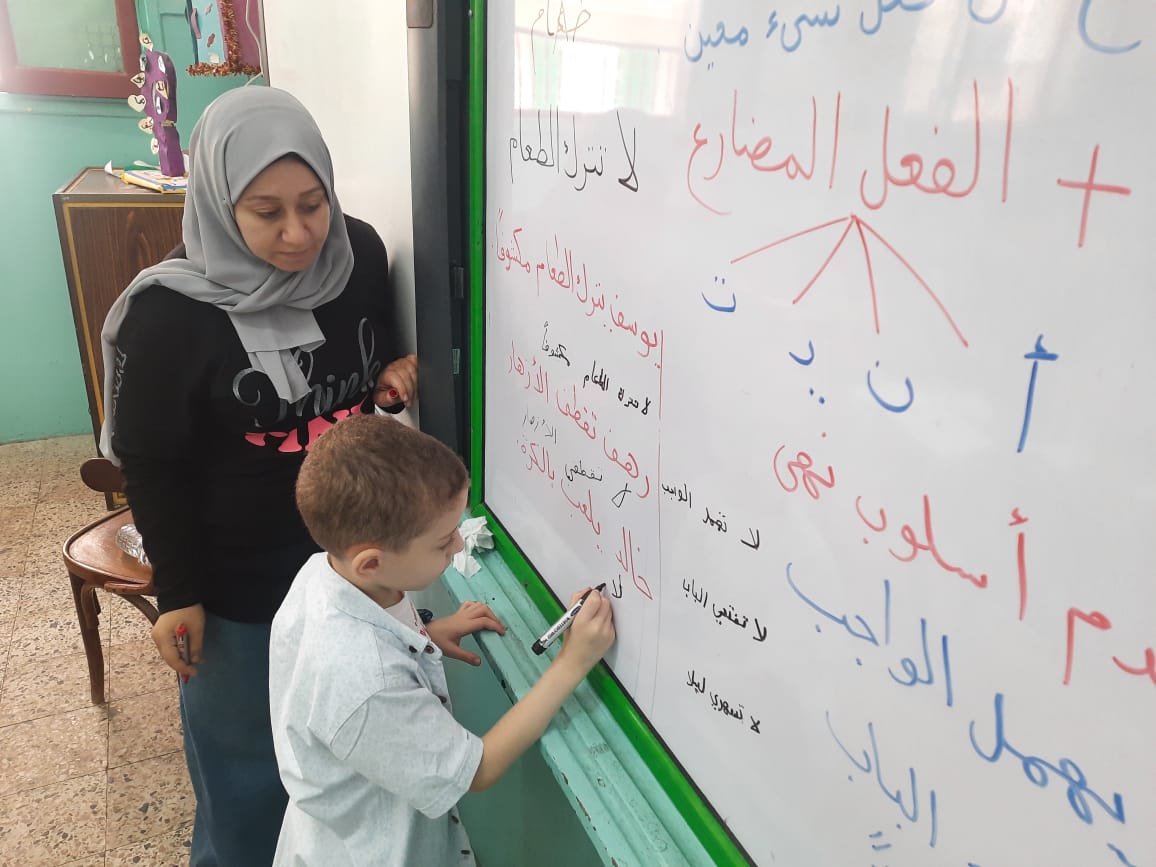 فعل شيء معين
+ الفعل المضارع
أ ن يـ ت
أسلوب نهي
الواجب
يهمل
الباب
لا تترك الطعام
يوسف يترك الطعام مكشوفاً
الطعام مكشوفاً
رهف تقطف الأزهار
لا تقطفي الأزهار
خالد يلعب بالكرة
لا
لا تهمل الواجب
لا تفتحي الباب
لا تسهري ليلا
Think